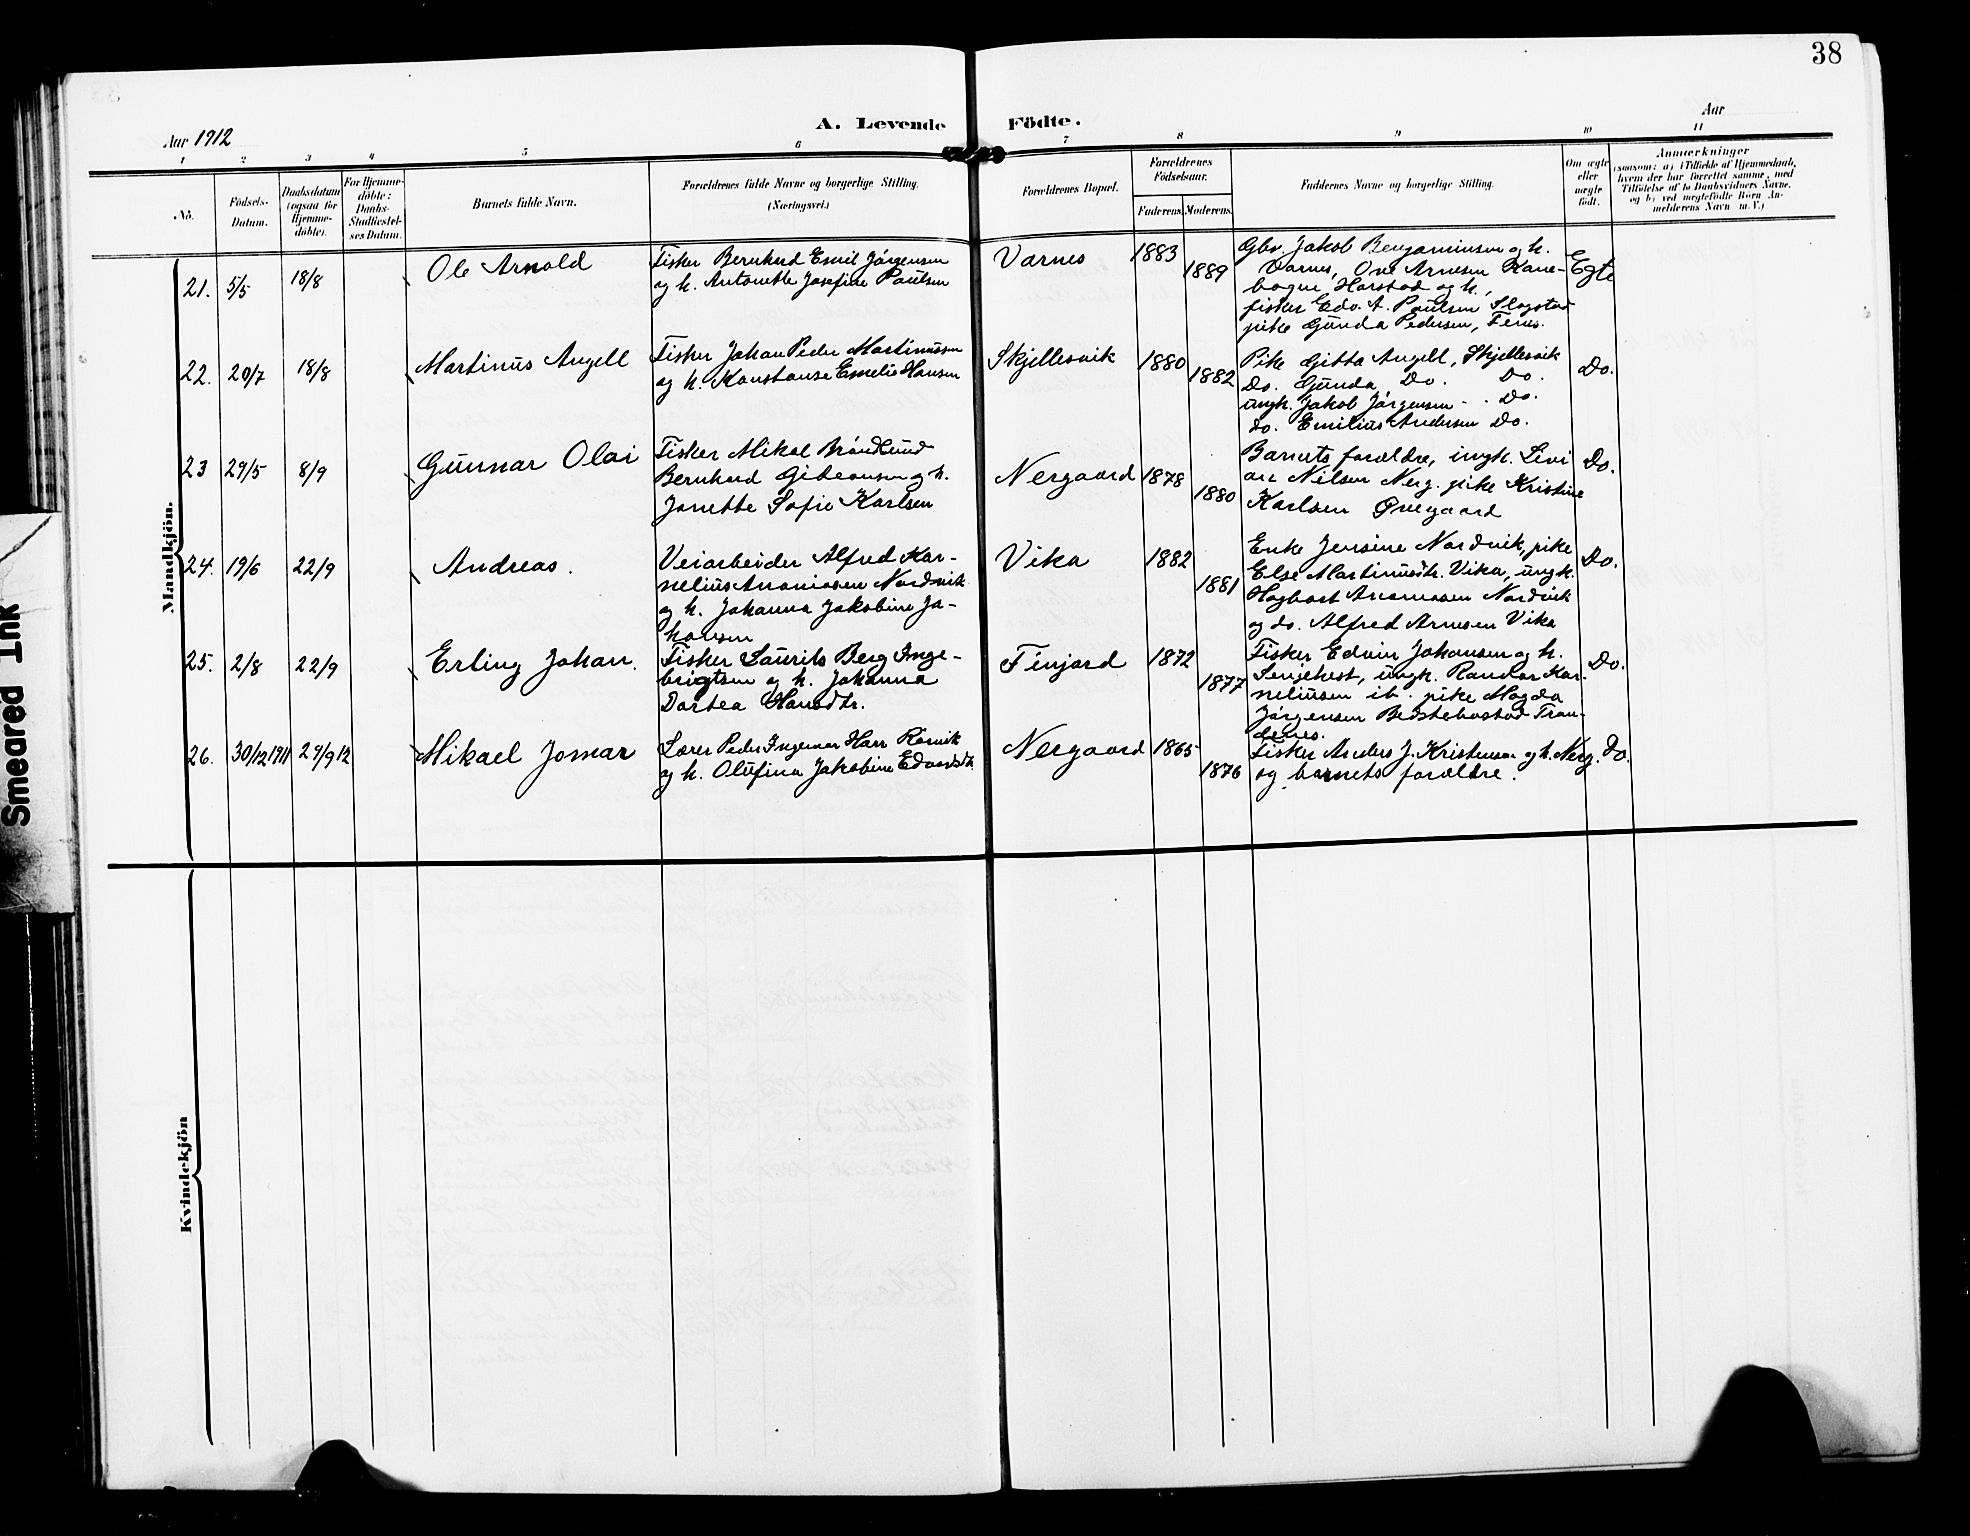 38
Aar 1912
A. Levende Födte.
Aar
1 2 3 4 5 6 7 8 9 10 11
No.
Födsels-
Datum.
Daabsdatum
(ogsaa for
Hjemme-
döbte).
For Hjemme-
döbte:
Daabs-
Stadfæstel-
ses Datum.
Barnets fulde Navn.
Forældrenes fulde Navne og borgerlige Stilling.
(Næringsvei.)
Forældrenes Bopæl.
Forældrenes
Födselsaar.
Faderens. Moderens.
Faddernes Navne og borgerlige Stilling.
Om ægte
eller
uægte
födt.
Anmærkninger
(saasom: a) i Tilfælde af Hjemmedaab,
hvem der har forrettet samme, med
Tilföielse af to Daabsvidners Navne,
og b) ved uægtefödte Börn An-
melderens Navn m. V.)
Mandkjön.
21. 5/5 18/8 Ole Arnold
Fisker Bernhard Emil Jörgensen
og h. Antonette Josefine Paulsen
Varnes 1883 1889
Gbr. Jakob Benjaminsen og h.
Varnes, Ove Arnesen Kane-
bogen, Harstad og h.,
fisker Edv. A. Paulsen Slagstad
pike Gunda Pedersen, Fenes.
Egte
22. 20/7 18/8 Martinus Angell
Fisker Johan Peder Martinussen
og h. Konstanse Emelie Hansen
Skjellesvik 1880 1882
Pike Gitta Angell, Skjellesvik
Do. Gunda Do. Do.
ungk. Jakob Jörgensen - Do.
Do. Emilius Andersen Do.
Do.
23 29/5 8/9 Gunnar Olai
Fisker Mikal Bröndlund
Bernhard Gideonsen og h.
Janette Sofie Karlsen
Nergaard 1878 1880
Barnets forældre, ungk. Livi
Nilsen Nerg. pike Kristine
Karlsen Övegaard
Do.
24. 19/6 22/9 Andreas.
Veiarbeider Alfred Kor-
nelius Ananiasen Nordvik
og h. Johanna Jakobine Jo-
hansen
Vika 1882 1881
Enke Jensine Nordvik, pike
Else Martinusdtr. Vika, ungk.
Hagbart Ananiasen Nordvik
og do. Alfred Arnesen Vika
Do.
25. 2/8 22/9 Erling Johan.
Fisker Laurits Berg Inge-
brigtsen og h. Johanna
Dortea Hansdtr.
Finjord 1872 1877
Fisker Edvin Johansen og h.
Senjehest, ungk. Randor Kor-
neliusen ib. pike Magda
Jörgensen Bedstebostad Tran-
denes.
Do.
26. 30/12 1911 29/9 12 Mikael Jomar
Lærer Peder Ingemar Harr Rörvik
og h. Olufina Jakobine Edvardsdtr.
Nergaard 1865 1876
Fisker Anders J. Kristensen og h. Nerg.
og barnets forældre.
Do.
Kvindekjön
Smeared Ink